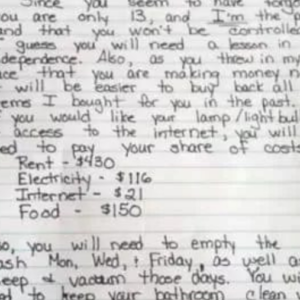 Since you seem to have
ou are only 13, and I'm the
and that you won't be controlled
guess you will need a lesson in
dependence. Also, as you threw in my
ce that you are making money n
will be easier to buy back all
ems I bought for you in the past.
you would like your lamp/lightbul
access to the internet, you will
ed to pay your share of costs
Rent - $430
Electricity - $116
Internet - $21
Food - $150
so, you will need to empty the
ash Mon, Wed, & Friday, as well as
eep & vacuum those days. You wi
ed to keep your bathroom clean